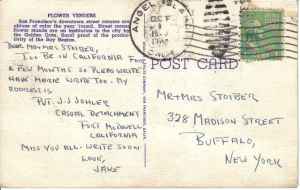 FLOWER VENDERS
San Francisco's downtown street corners are
of color the year 'round. Street corner
flower stands are an institution in the city by
the Golden Gate. Small proof of the productivity of the Bay Region.
DEAR MR + MRS STOIBER,
I'LL BE IN CALIFORNIA FOR
A FEW MONTHS SO PLEASE WRITE
HAVE MARIE WRITE TOO - MY
ADDRESS IS
PVT. J.J SOHLER
CASUAL DETACHMENT
FORT McDOWELL
CALIFORNIA
MISS YOU ALL - WRITE SOON
LOVE,
JAKE
ANGEL ISLAND
OCT
CALIF
POST CARD
MR + MRS STOIBER
328 MADISON STREET
BUFFALO,
NEW YORK